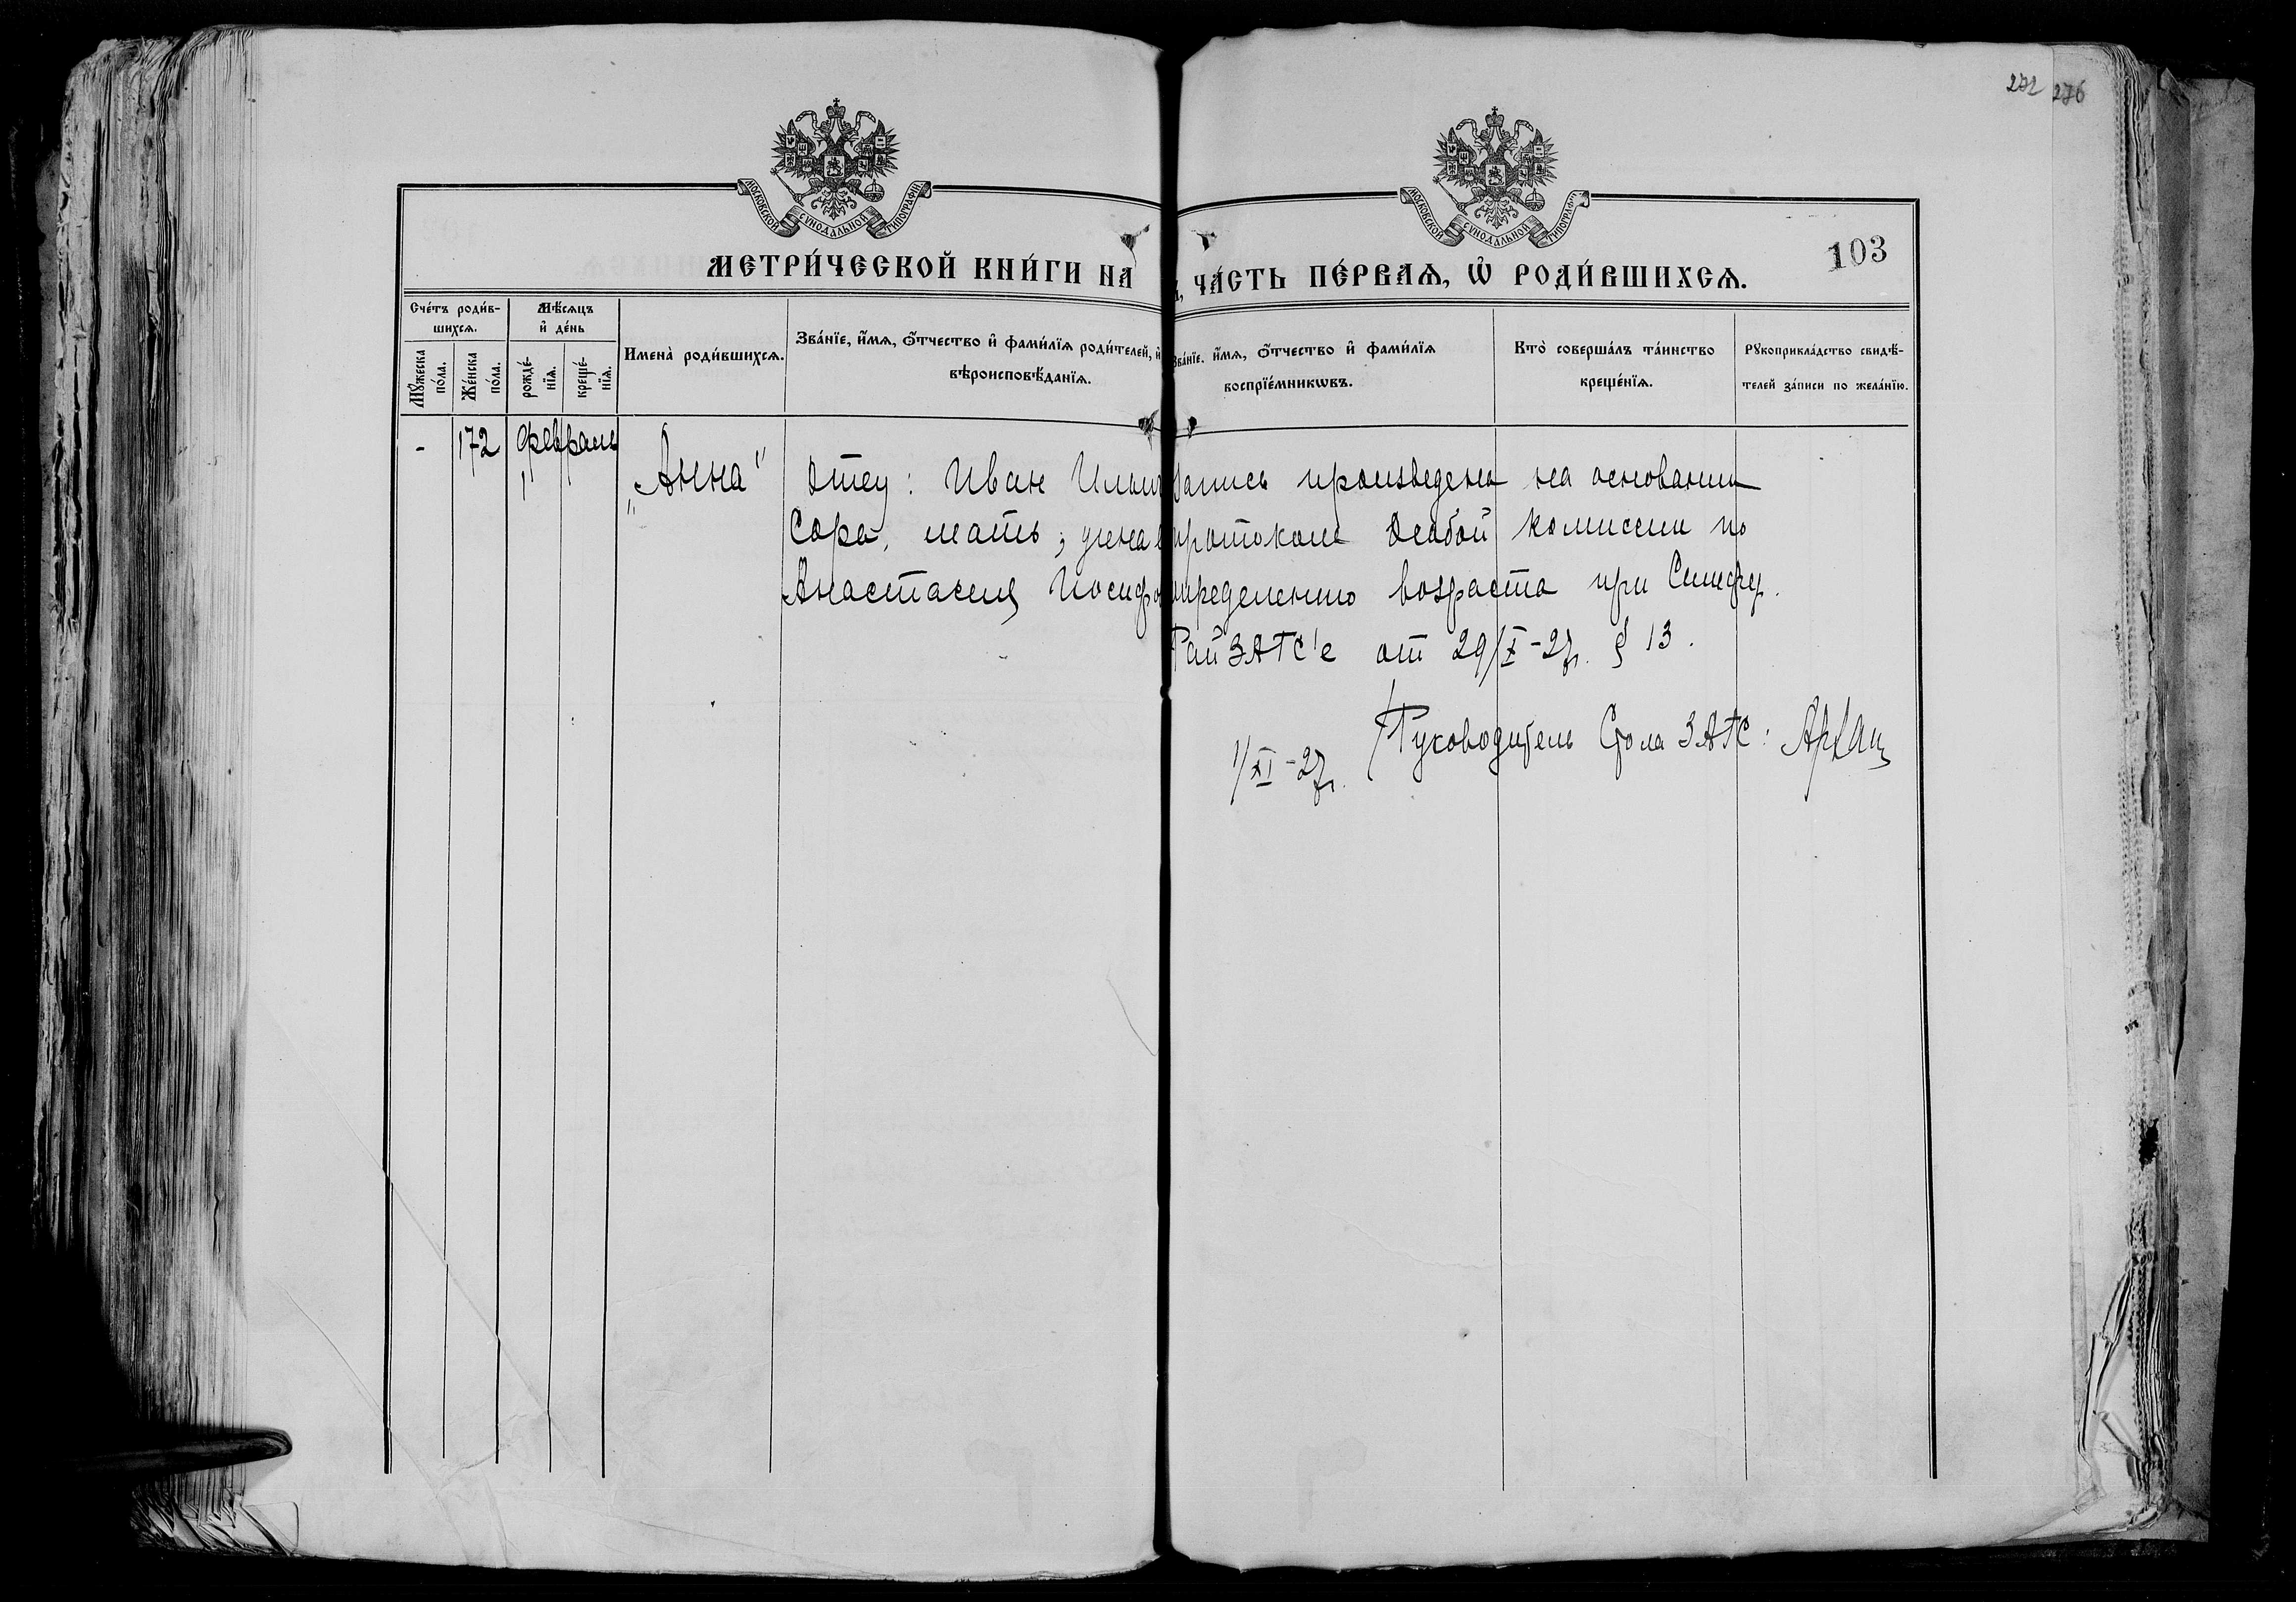 272 276
МОСКОВСКОЙ СѴНОДАЛЬНОЙ ТИПОГРАФІИ
МОСКОВСКОЙ СѴНОДАЛЬНОЙ ТИПОГРАФІИ
103
МЕТРИ́ЧЕСКОЙ КНИ́ГИ НА
ЧА́СТЬ ПЕ́РВАѦ, Ѡ҆ РОДИ́ВШИХСѦ.
Сче́тъ роди́в-
шихсѧ.
Мꙋ́жеска
по́ла.
Же́нска
по́ла.
Мѣ́сѧцъ
и҆ де́нь
рожде́-
нїѧ.
креще́-
нїѧ.
Имена̀ роди́вшихсѧ.
Зва́нїе, и҆́мѧ, ѻ҆́тчество и҆ фами́лїѧ роди́телей, и҆
вѣроисповѣ́данїѧ.
Зва́нїе, и҆́мѧ, ѻ҆́тчество и҆ фами́лїѧ
воспрїе́мникѡвъ.
Кто̀ соверша́лъ та́инство
креще́нїѧ.
Рꙋкоприкла́дство свидѣ́-
телей за́писи по жела́нїю.
- 172 февраль
1
„Анна"
Отец: Иван Ильи
Сора, мать; жена
Анастасия Иосифо
Запись произведена на основании
протокола Особой комиссии по
определению возраста при Симфер.
РайЗАГС'е от 29/X-27г. § 13.
Руководитель Стола ЗАГС:
1/XI-27г.